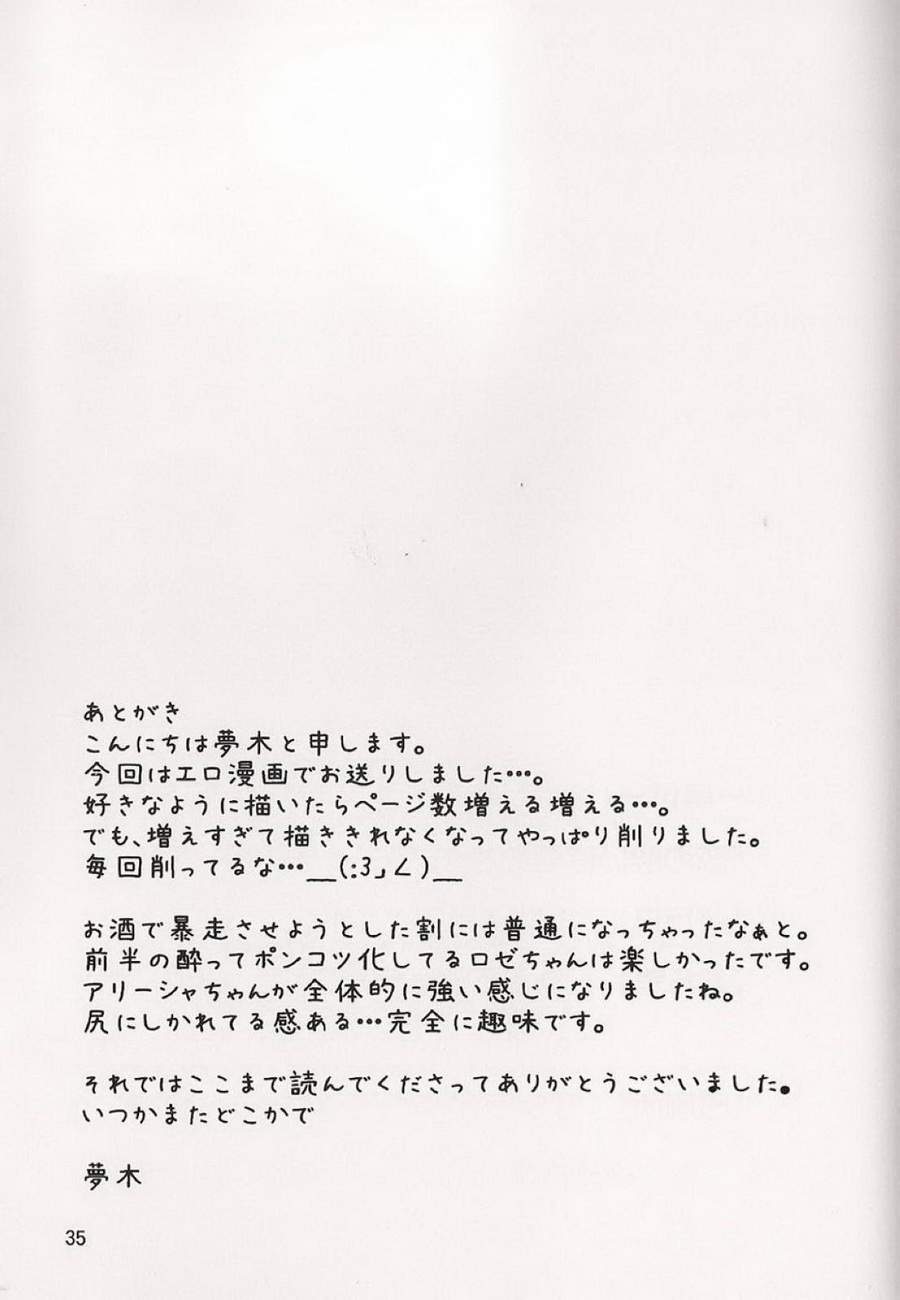 あとがき
こんにちは夢木と申します。
今回はエロ漫画でお送りしました…。
好きなように描いたらページ数増える増える…。
でも、増えすぎて描ききれなくなってやっぱり削りました。
毎回削ってるな…＿(:3」∠)＿
お酒で暴走させようとした割には普通になっちゃったなぁと。
前半の酔ってポンコツ化してるロゼちゃんは楽しかったです。
アリーシャちゃんが全体的に強い感じになりましたね。
尻にしかれてる感ある…完全に趣味です。
それではここまで読んでくださってありがとうございました。
いつかまたどこかで
夢木
35